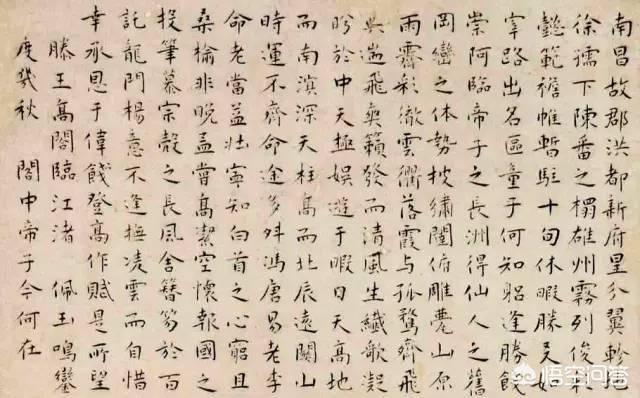 南昌故郡洪都新府星分翼軫地
徐孺下陳蕃之榻雄州霧列俊彩
懿範襜帷暫駐十旬休暇勝友如
宰路出名區童子何知躬逢勝餞
崇阿臨帝子之長洲得仙人之舊
岡巒之體勢披繡闥俯雕甍山原
雨霽彩徹雲衢落霞與孤鶩齊飛
興遄飛爽籟發而清風生纖歌凝
盼於中天極娛遊于暇日天高地
而南溟深天柱高而北辰遠關山
時運不齊命途多舛馮唐易老李
命老當益壯寧知白首之心窮且
桑榆非晚孟嘗高潔空懷報國之
投筆慕宗愨之長風舍簪笏於百
託龍門楊意不逢撫凌雲而自惜
幸承恩于偉餞登高作賦是所望
滕王高閣臨江渚 佩玉鳴鑾
度幾秋 閣中帝子今何在
悟空问答